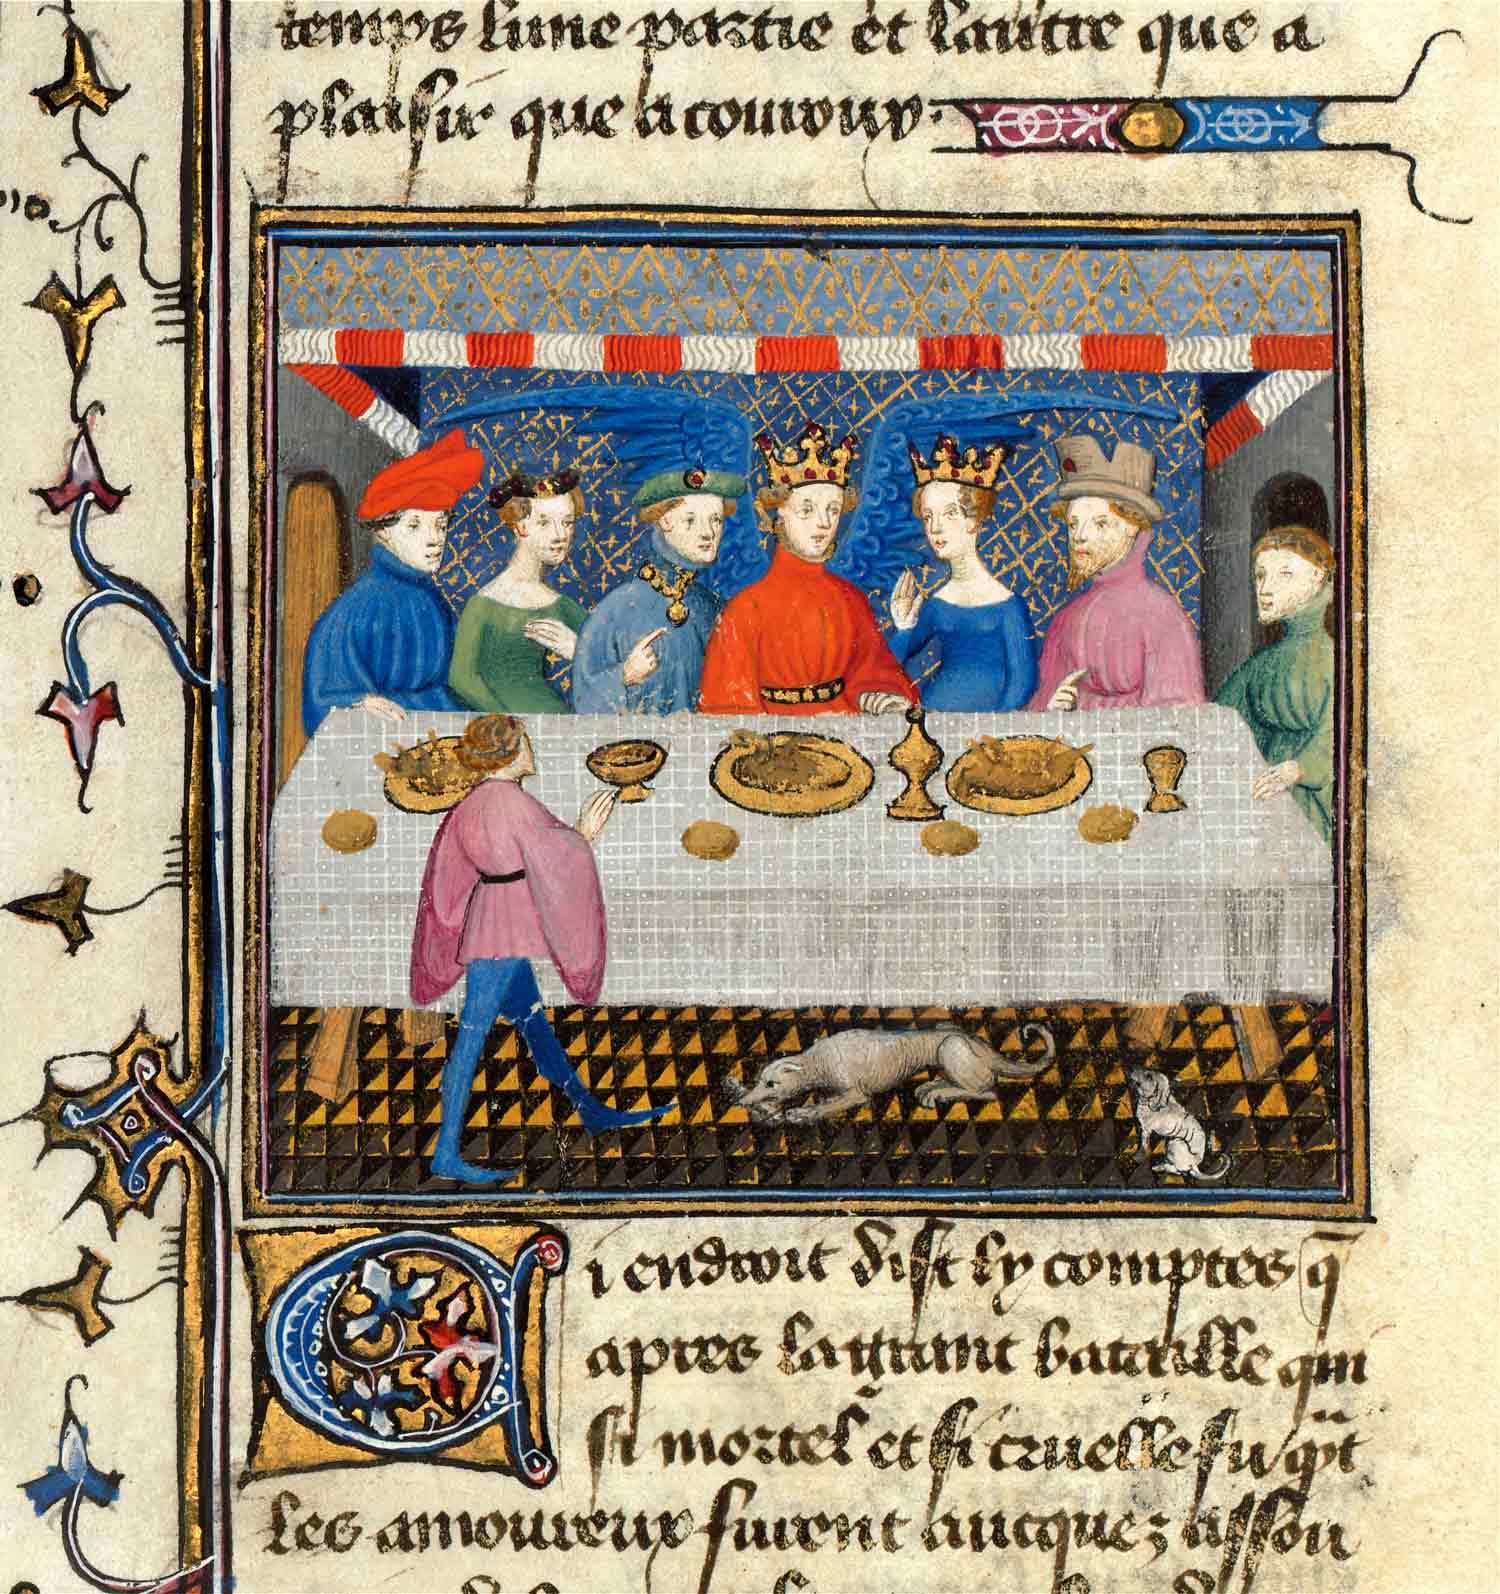 temps lune partie et lautre que a
plaisir que a couroux.
Ci endroit dist ly comptes q̄
apres la grant bataille qui
si mortel̄ et si cruelle fu q̄t
les amoureux furent aucquez assou